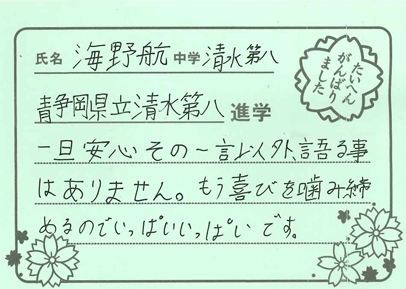 氏名 海野航 中学 清水第八
たいへん
がんばり
ました
静岡県立清水第八 進学
一旦安心その一言以外、語る事
はありません。もう喜びを噛み締
めるのでいっぱいいっぱいです。